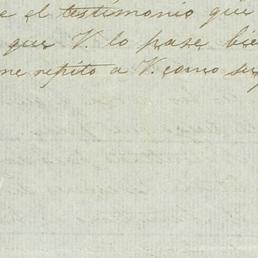 e el testimonio que
que V. lo pase bie
me repito a V. como su